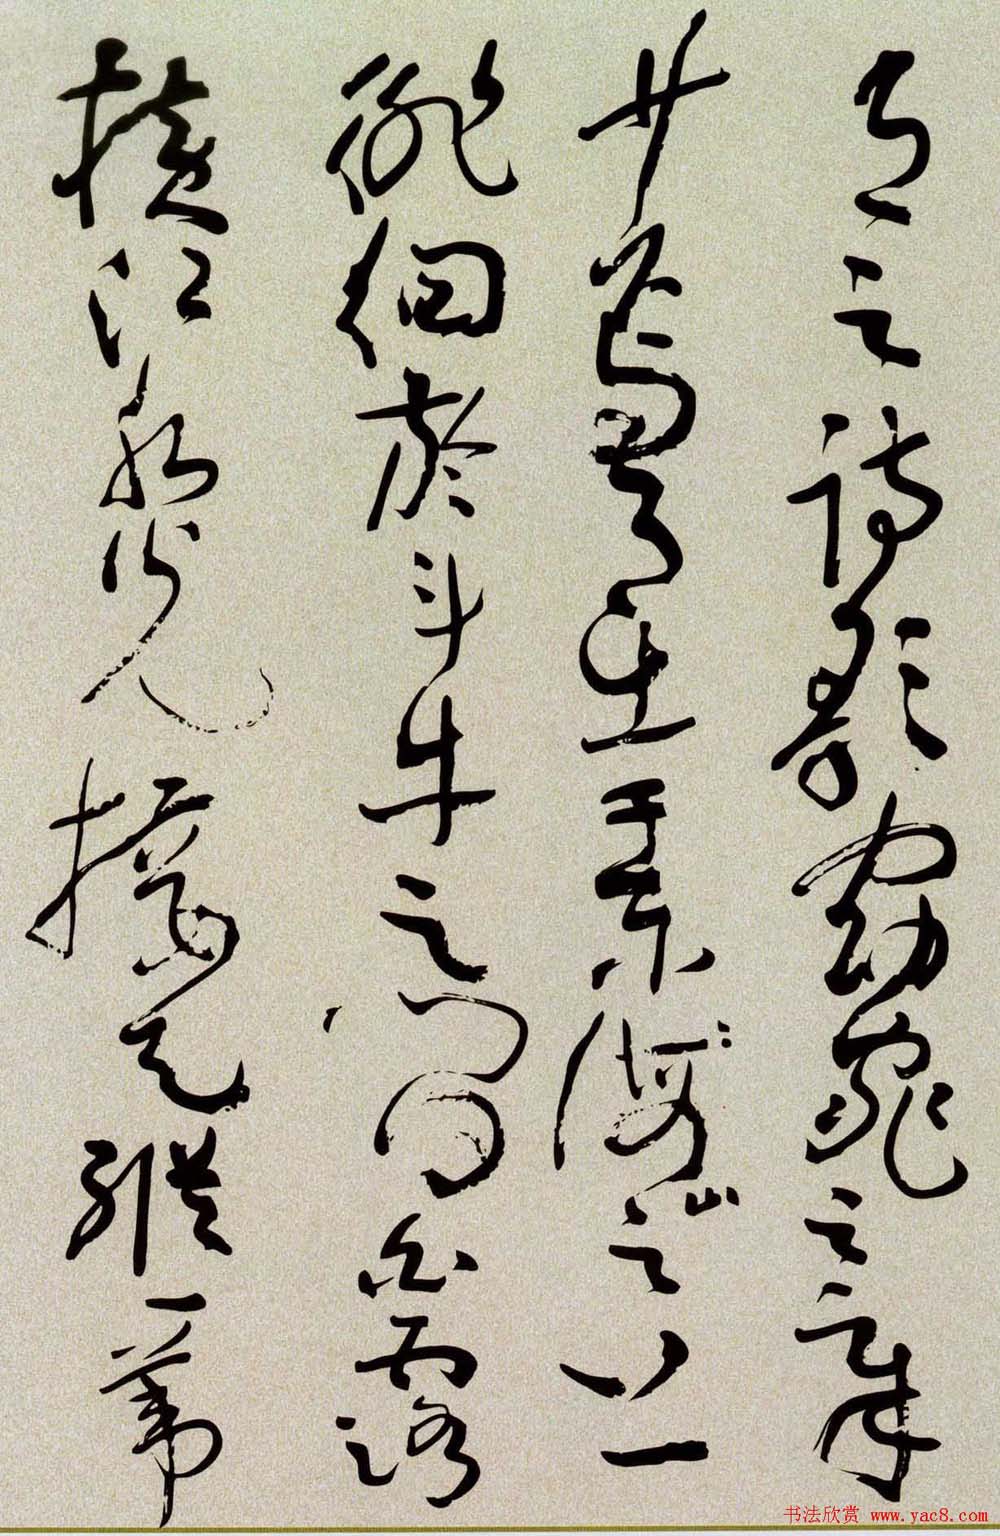 月之詩歌窈窕之章
少焉月出東海山之上
徘徊於斗牛之間白露
橫江水光接天縱一葦
书法欣赏 www.yac8.com